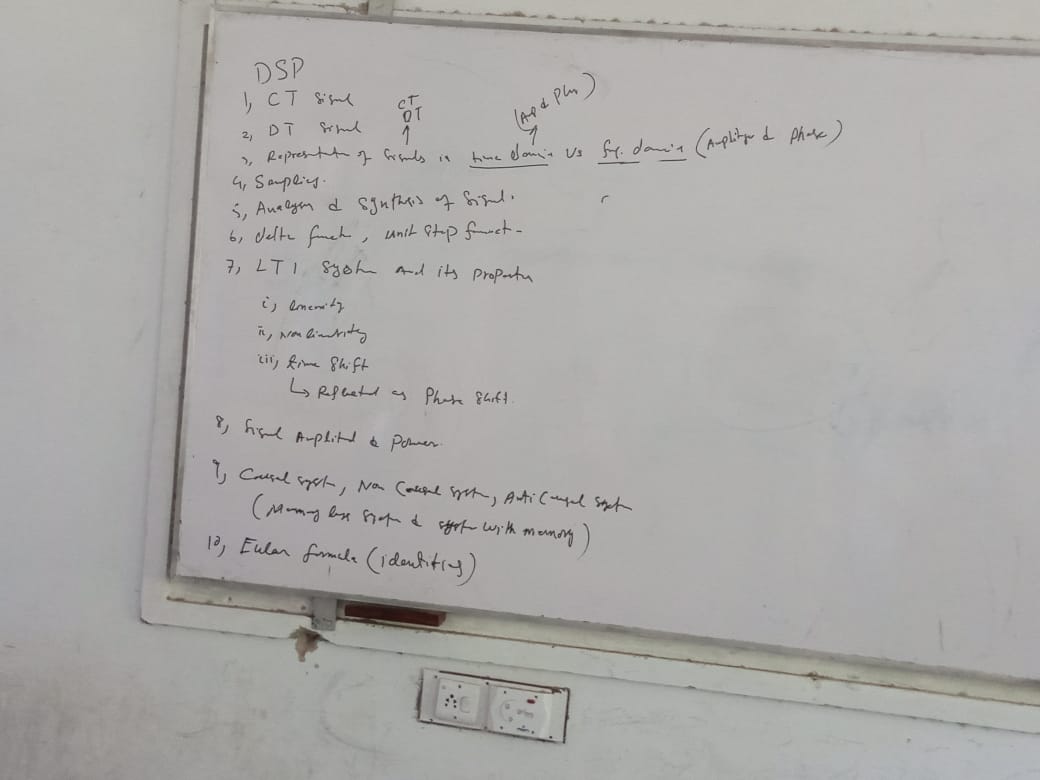 DSP
1, CT Signal
CT
DT
(Amp & Phs)
2, DT Signal
3, Representatn of Signals in time domain VS frq. domain (Amplitude & Phase)
4, Sampling.
5, Analysis & Synthesis of Signal.
6, delta funct, unit step funct-
7, LTI System and its Property
i, linearity
ii, Non linearity
iii, time shift
↳ Reflected as Phase shift.
8, Signal Amplitud & Power.
9, Causal systm, Non Causal systm, Anti Causal systm
(Memory less systm & systm with memory)
10, Eular formula (identities)